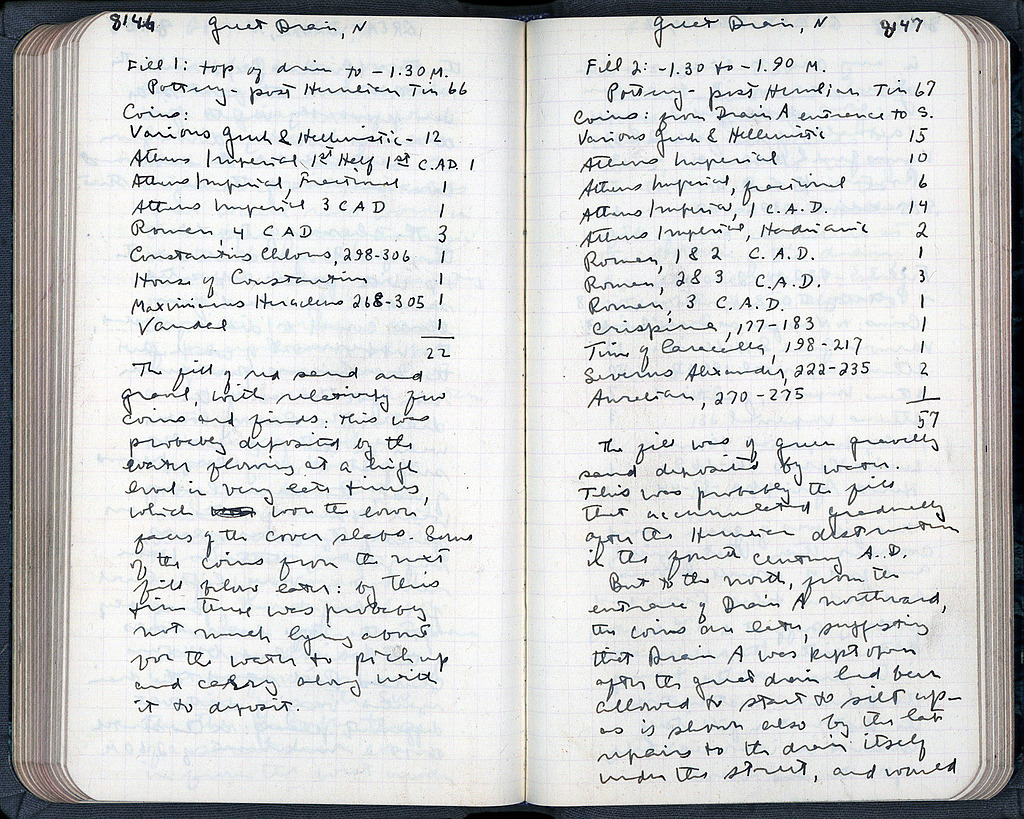 8146
Great Drain, N
Fill 1: top of drain to -1.30 M.
Pottery - post Herulian Tin 66
Coins:
Various Greek & Hellenistic - 12
Athens Imperial, 1st Half 1st C. A.D. 1
Athens Imperial, Fractional 1
Athens Imperial 3 C A D 1
Roman, 4 C AD 3
Constantius Chlorus, 298-306 1
House of Constantine 1
Maximianus Heraclius 268-305 1
Vandal 1
22
The fill of red sand and
gravel, with relatively few
coins and finds. This was
probably deposited by the
water flowing at a high
level in very late times,
which wore the lower
faces of the cover slabs. Some
of the coins from the next
fill below later: by this
time there was probably
not much lying about
for the water to pick up
and carry along with
it to deposit.
8147
Great Drain, N
Fill 2: -1.30 to -1.90 M.
Pottery - post Herulian Tin 67
Coins: from Drain A entrance to S.
Various Greek & Hellenistic 15
Athens Imperial 10
Athens Imperial, fractional 6
Athens Imperial, 1 C. A.D. 14
Athens Imperial, Hadrianic 2
Roman, 1 & 2 C. A.D. 1
Roman, 2 & 3 C. A.D. 3
Roman, 3 C. A.D. 1
Crispina, 177-183 1
Time of Caracalla, 198-217 1
Severus Alexander, 222-235 2
Aurelian, 270-275 1
57
The fill was of green gravelly
sand deposited by water.
This was probably the fill
that accumulated gradually
after the Herulian destruction
in the fourth century A.D.
But to the north, from the
entrance of Drain A northward,
the coins are later, suggesting
that Drain A was kept open
after the great drain had been
allowed to start to silt up -
as is shown also by the late
repairs to the drain itself
under the street, and would